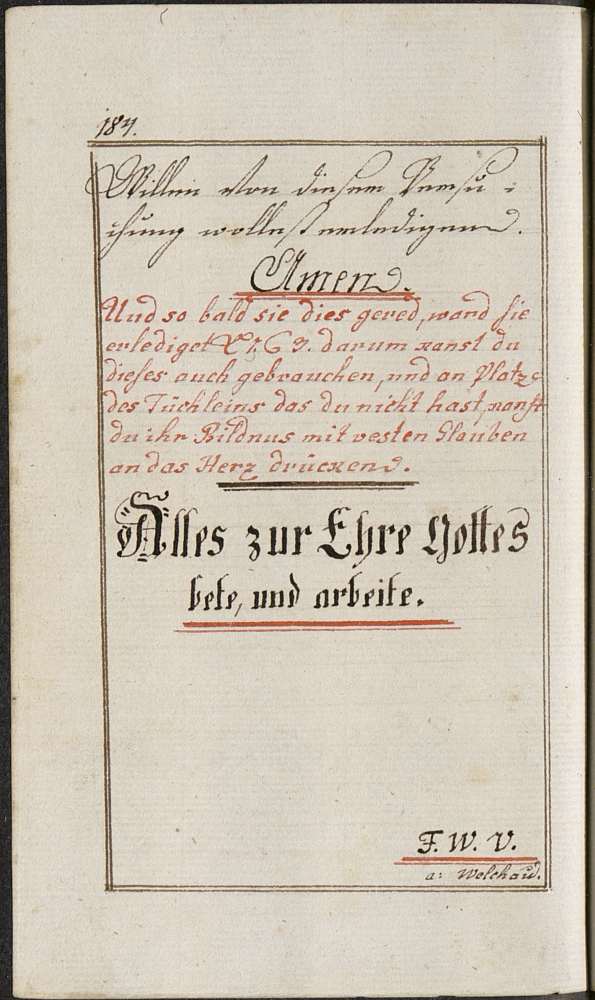 184.
Willen von diesem Versu=
chung wollest erledigen.
Amen.
Und so bald sie dies gered, ward sie
erlediget 1763. darum kanst du
dieses auch gebrauchen, und an Platz
des Tüchleins das du nicht hast, kanst
du ihr Bildnus mit vesten Glauben
an das Herz drücken.
Alles zur Ehre Gottes
bete, und arbeite.
F. W. V.
a: Welchau.